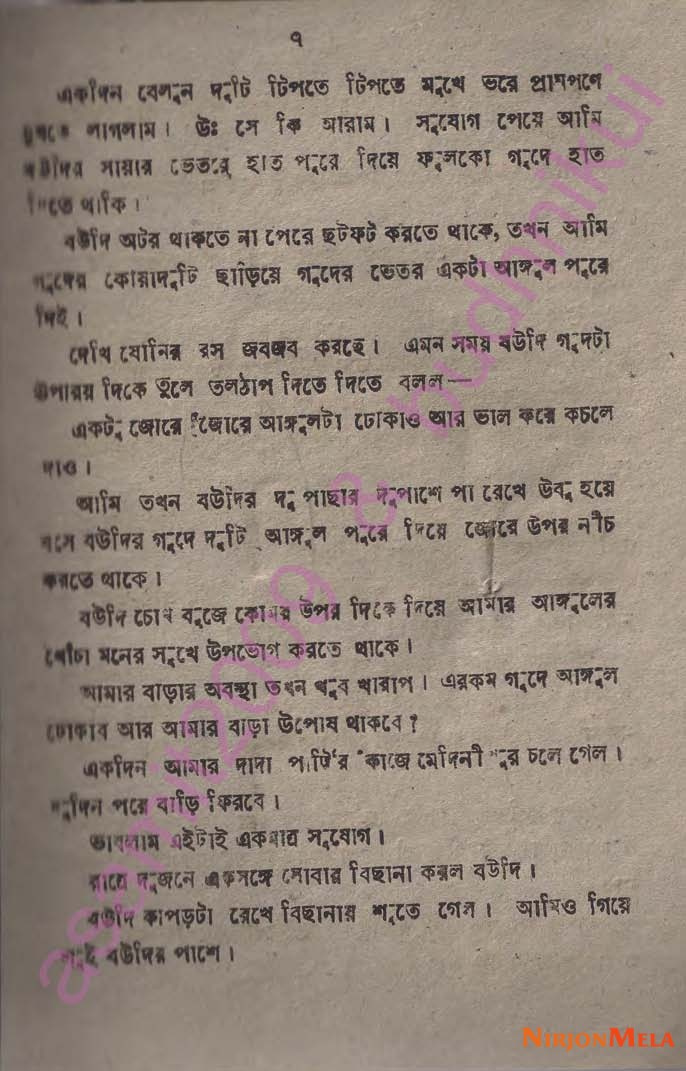 ৭
একদিন বেলুন দুটি টিপতে টিপতে মুখে ভরে প্রাণপণে
চুষতে লাগলাম। উঃ সে কি আরাম। সুযোগ পেয়ে আমি
বউদির সায়ার ভেতরে হাত পুরে দিয়ে ফুলকো গুদে হাত
দিতে থাকি।
বউদি অটর থাকতে না পেরে ছটফট করতে থাকে, তখন আমি
গুদের কোয়াদুটি ছাড়িয়ে গুদের ভেতর একটা আঙ্গুল পুরে
দিই।
দেখি যোনির রস জবজব করছে। এমন সময় বউদি গুদটা
উপারয় দিকে তুলে তলঠাপ দিতে দিতে বলল—
একটু জোরে জোরে আঙ্গুলটা ঢোকাও আর ভাল করে কচলে
দাও।
আমি তখন বউদির দু পাছার দুপাশে পা রেখে উবু হয়ে
বসে বউদির গুদে দুটি আঙ্গুল পুরে দিয়ে জোরে উপর নীচ
করতে থাকে।
বউদি চোখ বুজে কোমর উপর দিকে দিয়ে আমার আঙ্গুলের
খোঁচা মনের সুখে উপভোগ করতে থাকে।
আমার বাড়ার অবস্থা তখন খুব খারাপ। এরকম গুদে আঙ্গুল
ঢোকাব আর আমার বাড়া উপোষ থাকবে?
একদিন আমার দাদা পার্টির কাজে মেদিনীপুর চলে গেল।
দুদিন পরে বাড়ি ফিরবে।
ভাবলাম এইটাই একমাত্র সুযোগ।
রাত্রে দুজনে একসঙ্গে সোবার বিছানা করল বউদি।
বউদি কাপড়টা রেখে বিছানায় শুতে গেল। আমিও গিয়ে
শুই বউদির পাশে।
asamit2009 & budhhikui
NIRJONMELA